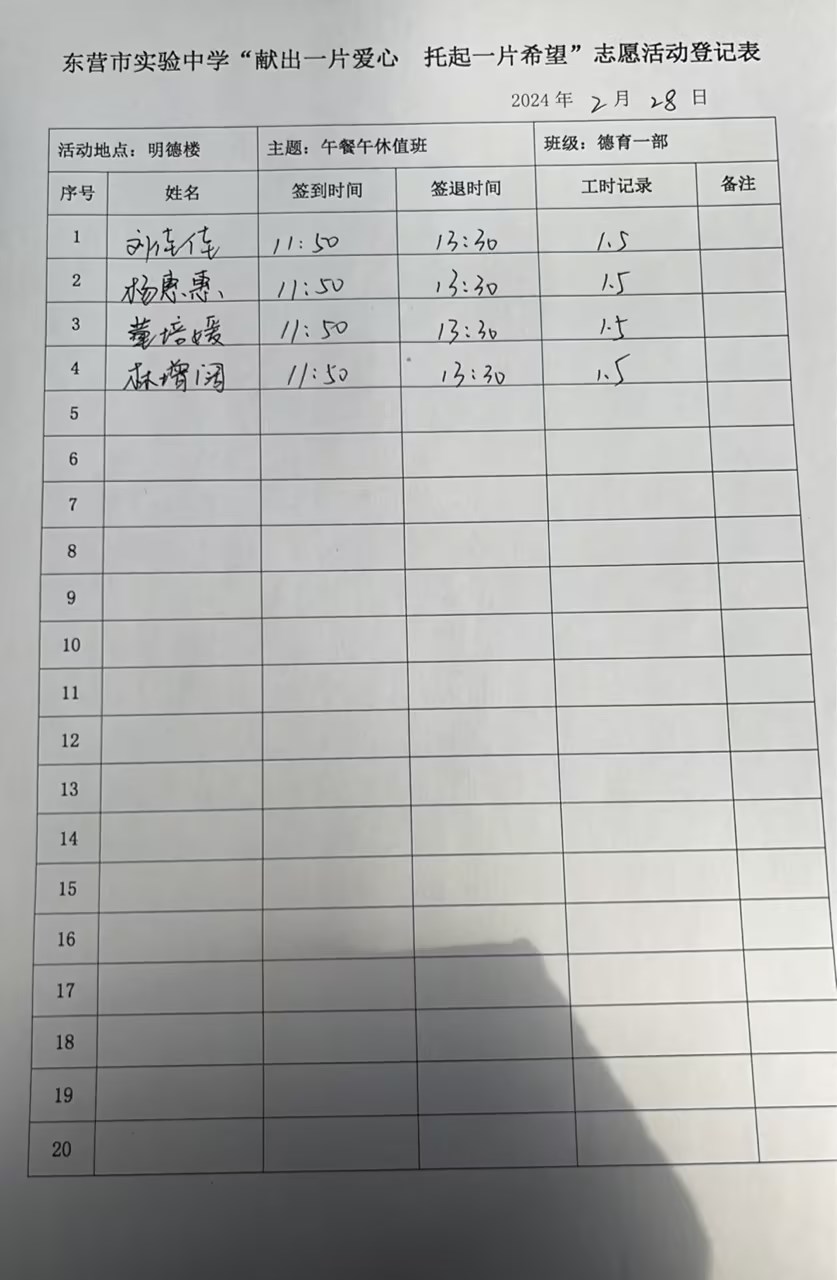 东营市实验中学“献出一片爱心 托起一片希望”志愿活动登记表
2024 年 2 月 28 日
活动地点：明德楼 主题：午餐午休值班 班级：德育一部
序号 姓名 签到时间 签退时间 工时记录 备注
1 刘佳佳 11:50 13:30 1.5
2 杨惠惠 11:50 13:30 1.5
3 董培媛 11:50 13:30 1.5
4 林增阔 11:50 13:30 1.5
5
6
7
8
9
10
11
12
13
14
15
16
17
18
19
20